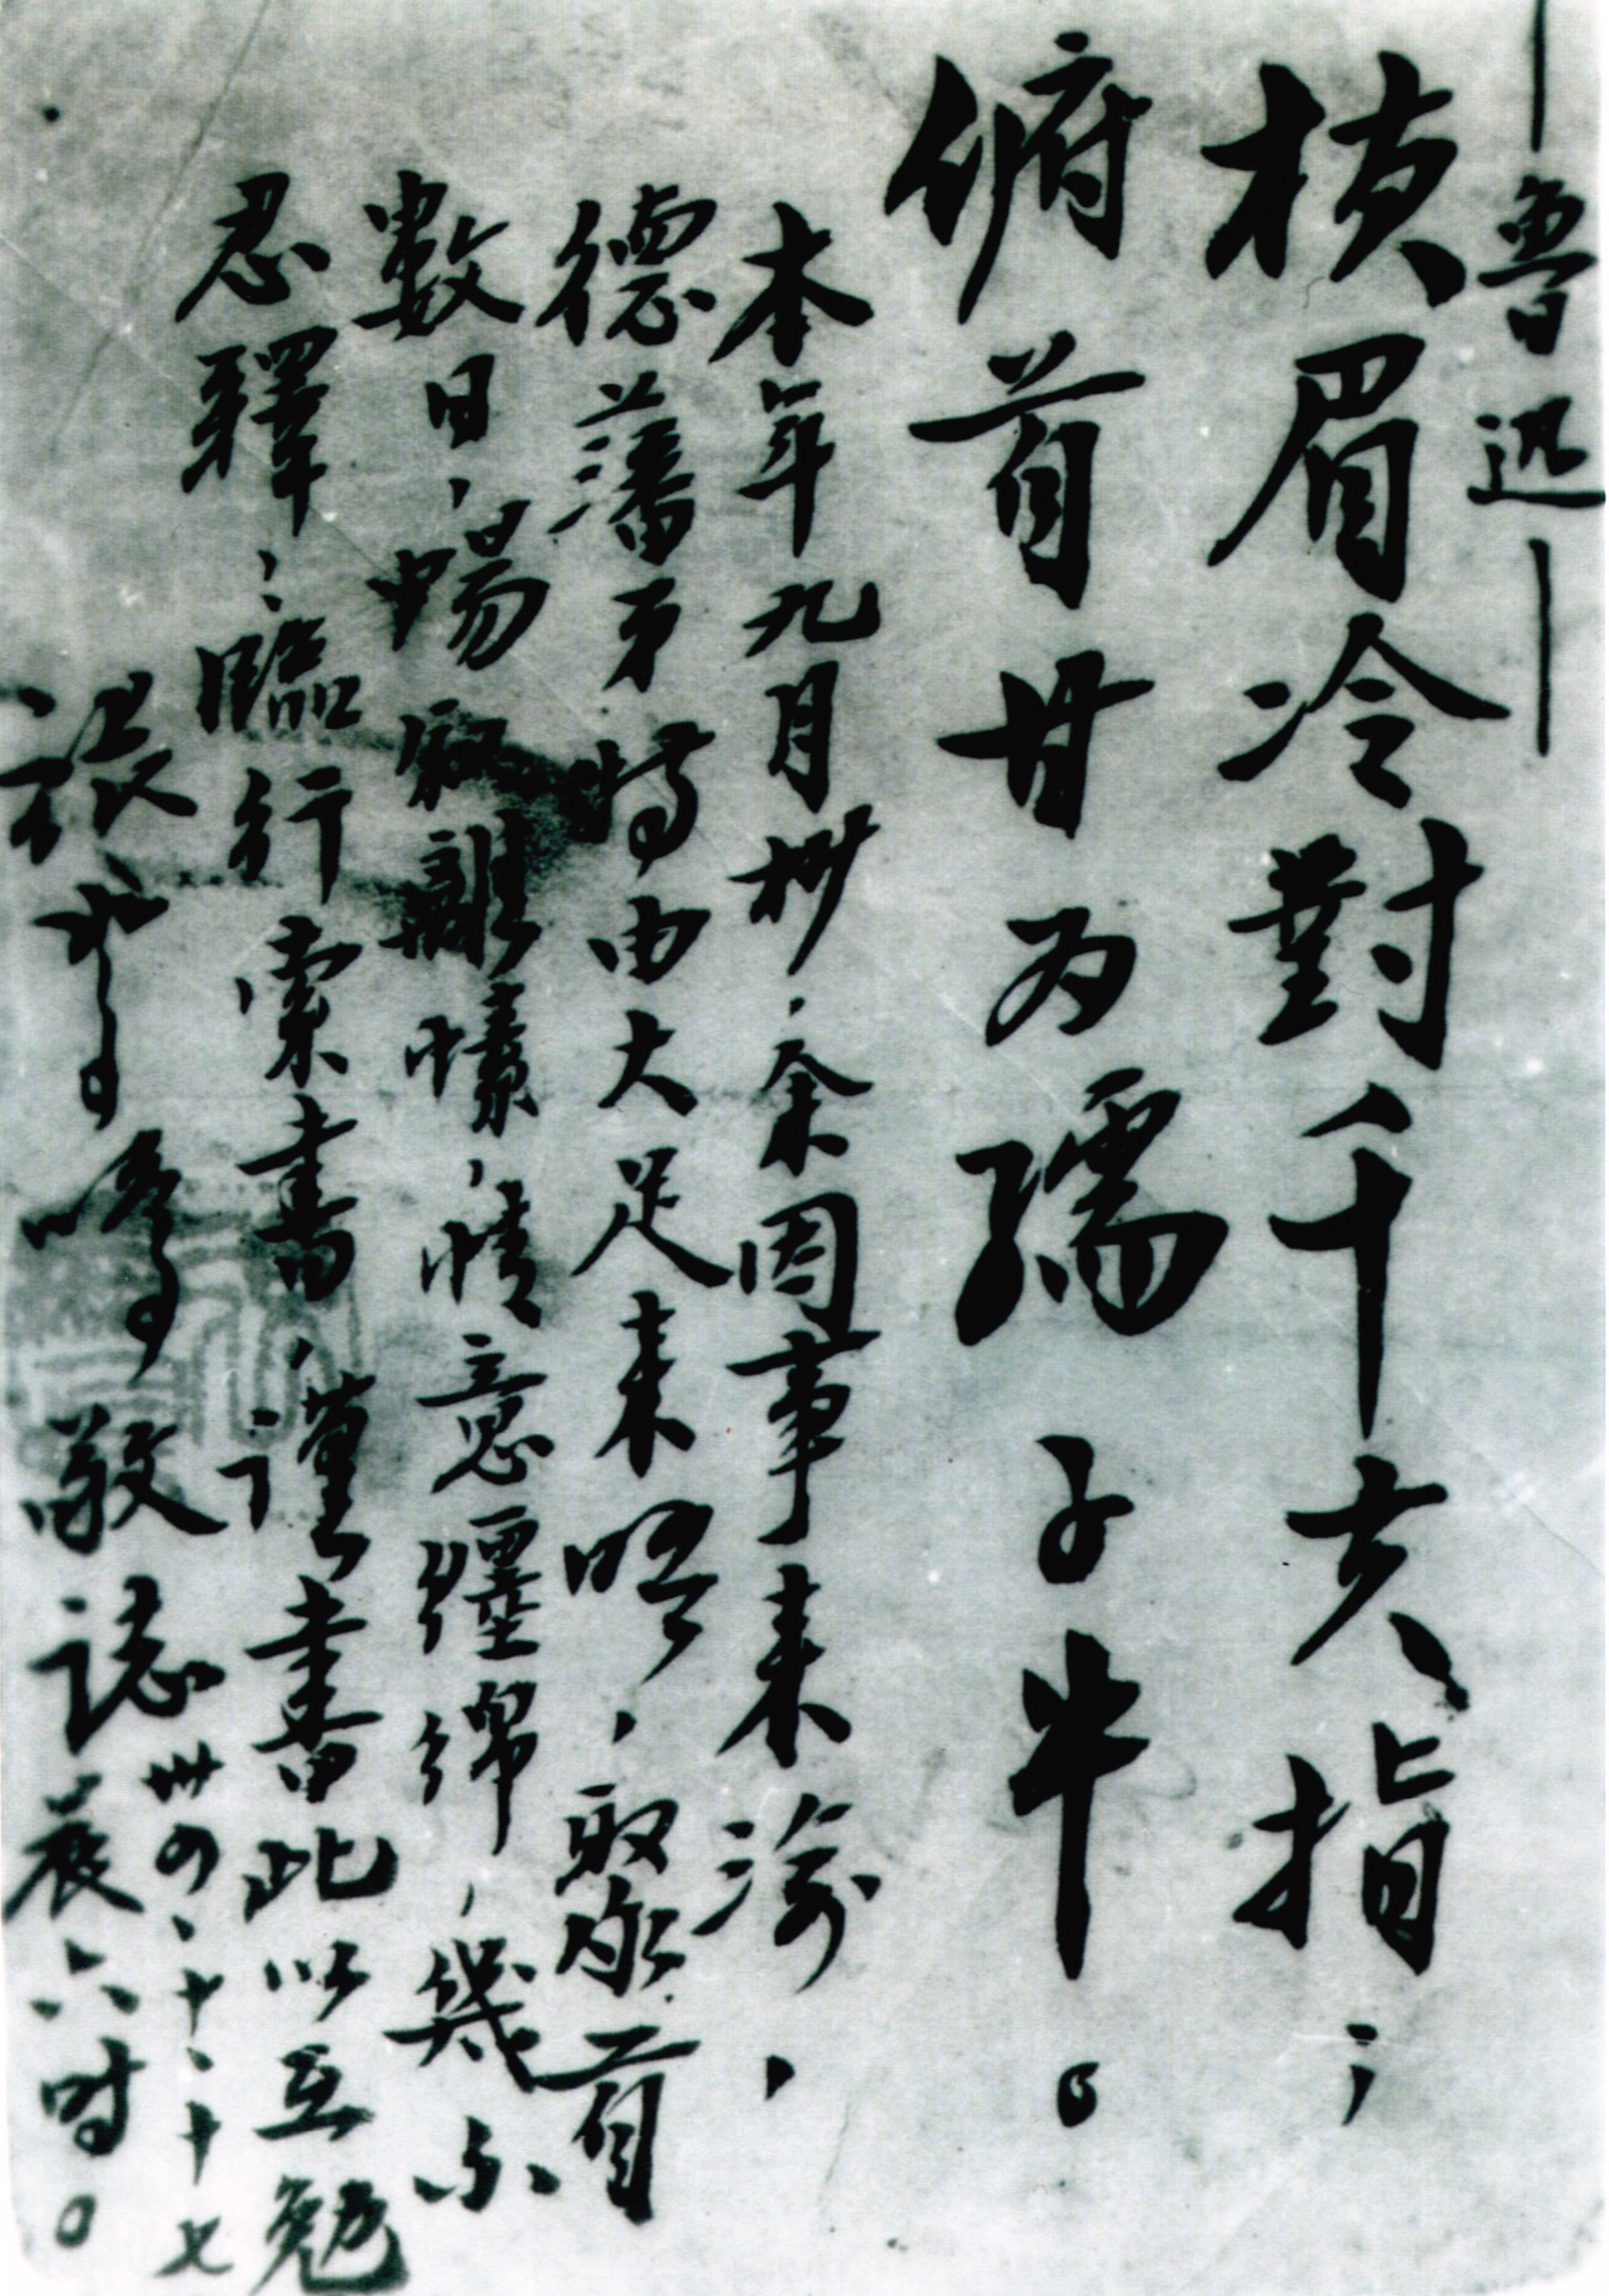 ——魯迅——
橫眉冷對千夫指;
俯首甘为孺子牛。
本年九月杪,余因事来渝,
德藩弟特由大足来晤,聚首
數日,暢叙離愫,情意纏綿,幾不
忍釋;臨行索書,謹書此以互勉
張鳴敬誌 卅四、十、十七 晨六時。